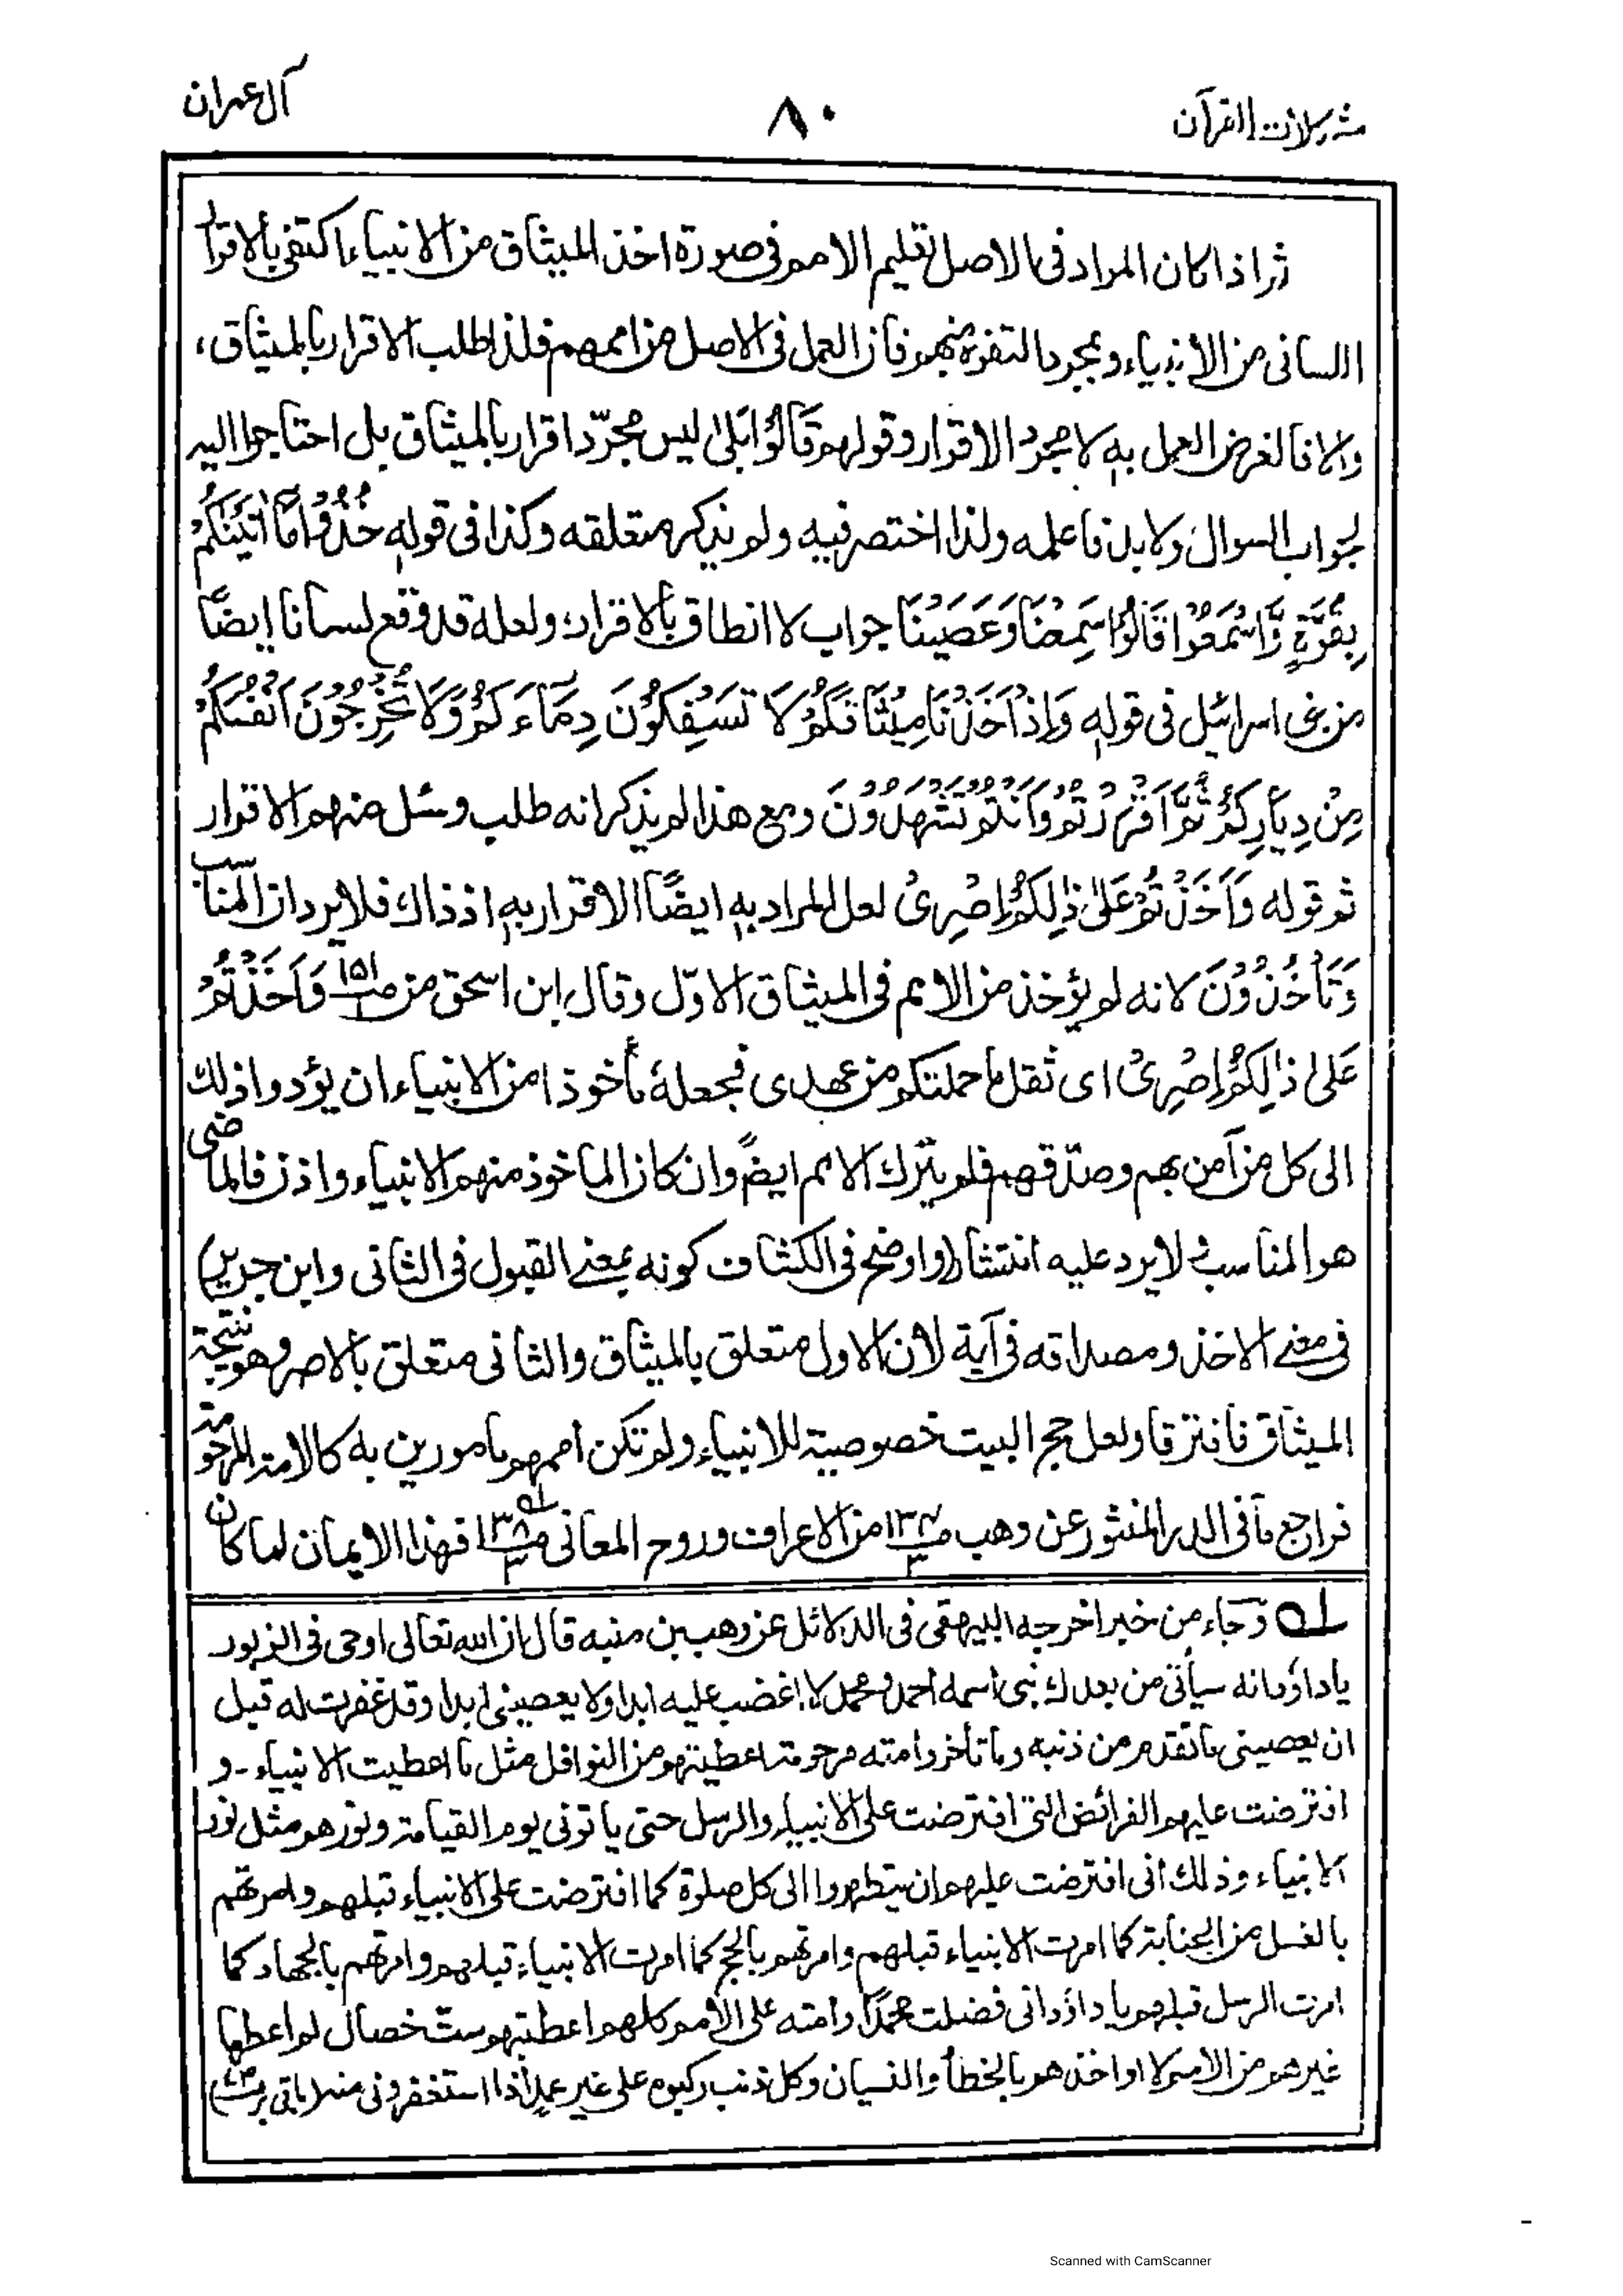 مشكلات القرآن
٨٠
آل عمران
ثم اذا كان المراد فى الاصل تعليم الامم فى صورة اخذ الميثاق من الانبياء اكتفى بالاقرار
اللسانى من الانبياء وبمجرد التفوه منهم فان العمل فى الاصل من اممهم فلذا طلب الاقرار بالميثاق،
والا فالغرض العمل به لا مجرد الاقرار وقولهم قَالُوْا بَلىٰ ليس مجرّد اقرار بالميثاق بل احتاجوا اليه
لجواب السوال ولا بد فاعلمه ولذا اختصر فيه ولم يذكر متعلقه وكذا فى قوله خُذُوْا مَا اٰتَيْنٰكُمْ
بِقُوَّةٍ وَّاسْمَعُوْا قَالُوْا سَمِعْنَا وَعَصَيْنَا جواب لا انطاق بالاقرار، ولعله قد وقع لسانا ايضًا
من بنى اسرائيل فى قوله وَاِذْ اَخَذْنَا مِيْثَاقَكُمْ لَا تَسْفِكُوْنَ دِمَآءَكُمْ وَلَا تُخْرِجُوْنَ اَنْفُسَكُمْ
مِنْ دِيَارِكُمْ ثُمَّ اَقْرَرْتُمْ وَاَنْتُمْ تَشْهَدُوْنَ ومع هذا لم يذكر انه طلب وسئل منهم الاقرار
ثم قوله وَاَخَذْتُمْ عَلىٰ ذٰلِكُمْ اِصْرِىْ لعل المراد به ايضًا الاقرار به اذ ذاك، فلا يرد ان المناسب
وَتَأْخُذُوْنَ لانه لم يؤخذ من الامم فى الميثاق الاوّل وقال ابن اسحق من ص١٥١ وَاَخَذْتُمْ
عَلىٰ ذٰلِكُمْ اِصْرِىْ اى ثقل ما حملتكم من عهدى فجعله مأخوذا من الانبياء ان يؤدوا ذلك
الى كل من آمن بهم وصدّقهم فلم يترك الامم ايضًا وان كان الماخوذ منهم الانبياء واذن فالماضى
هو المناسب لا يرد عليه انتشار (واوضح فى الكشاف كونه بمعنى القبول فى الثانى وابن جرير)
فى معنى الاخذ ومصداقه فى آية لان الاول متعلق بالميثاق والثانى متعلق بالاصر وهو نتيجة
الميثاق فافترقا ولعل حج البيت خصوصية للانبياء ولم تكن اممهم مامورين به كالامة المرحومة
فراجع مافى الدر المنثور عن وهب ص١٣٢/٣ من الاعراف وروح المعانى ص١٣٨/٣ ؎١ فهذا الايمان لما كان
؎١ وجاء من خبر اخرجه البيهقى فى الدلائل عن وهب بن منبه قال ان الله تعالى اوحى فى الزبور
ياداؤد انه سيأتى من بعدك نبى اسمه احمد ومحمد لا اغضب عليه ابدا ولا يعصينى ابدا وقد غفرت له قبل
ان يعصينى ماتقدم من ذنبه وما تأخر وامته مرحومة اعطيتهم من النوافل مثل ما اعطيت الانبياء - و
افترضت عليهم الفرائض التى افترضت على الانبياء والرسل حتى ياتونى يوم القيامة ونورهم مثل نور
الانبياء وذلك انى افترضت عليهم ان يتطهروا الى كل صلوة كما افترضت على الانبياء قبلهم وامرتهم
بالغسل من الجنابة كما امرت الانبياء قبلهم وامرتهم بالحج كما امرت الانبياء قبلهم وامرتهم بالجهاد كما
امرت الرسل قبلهم ياداؤد انى فضلت محمدًا وامته على الامم كلهم اعطيتهم ست خصال لم اعطها
غيرهم من الامم لا اواخذهم بالخطأ والنسيان وكل ذنب ركبوه على غير عمد اذا استغفرونى منه
Scanned with CamScanner